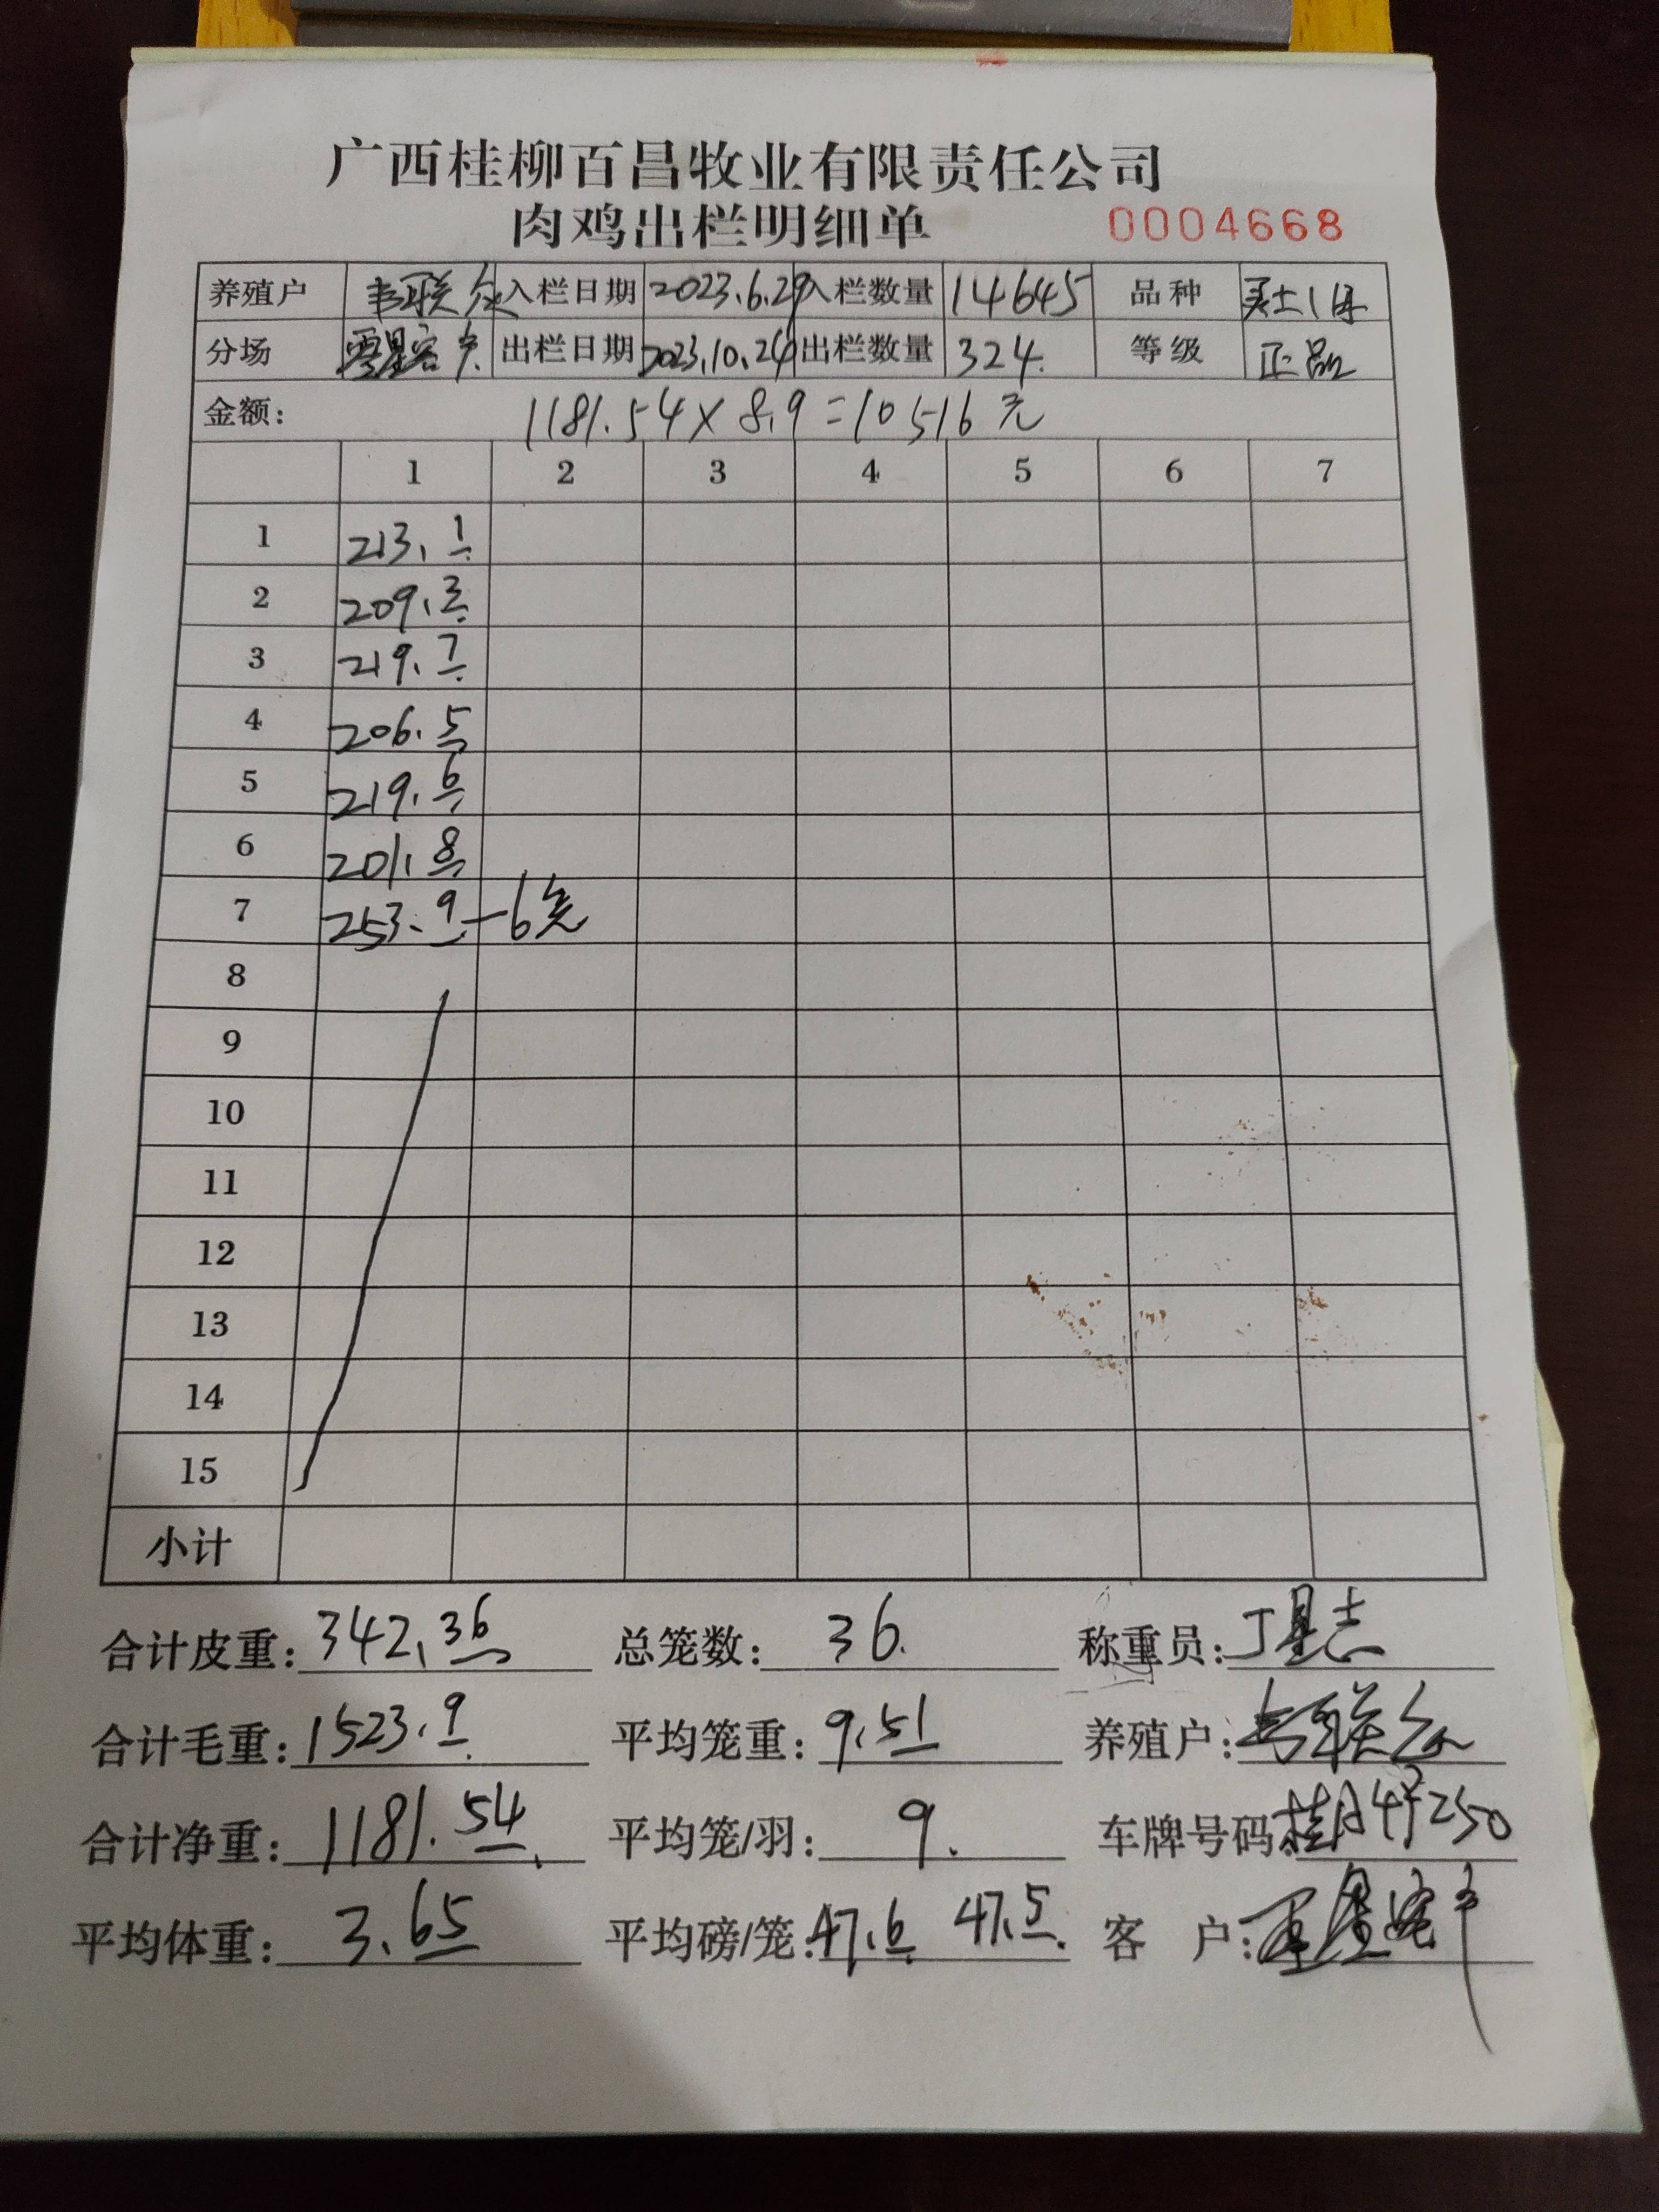 广西桂柳百昌牧业有限责任公司
肉鸡出栏明细单 0004668
养殖户 韦联众 入栏日期 2023.6.29 入栏数量 14645 品种
分场 出栏日期 2023.10.24 出栏数量 324. 等级 正品
金额: 1181.54×8.9=10516元
1 2 3 4 5 6 7
1 213.1
2 209.3
3 219.7
4 206.5
5 219.6
6 201.8
7 253.9-6笼
8
9
10
11
12
13
14
15
小计
合计皮重: 342.36 总笼数: 36. 称重员:
合计毛重: 1523.9 平均笼重: 9.51 养殖户: 韦联众
合计净重: 1181.54 平均笼/羽: 9. 车牌号码:
平均体重: 3.65 平均磅/笼: 47.6 47.5 客 户: